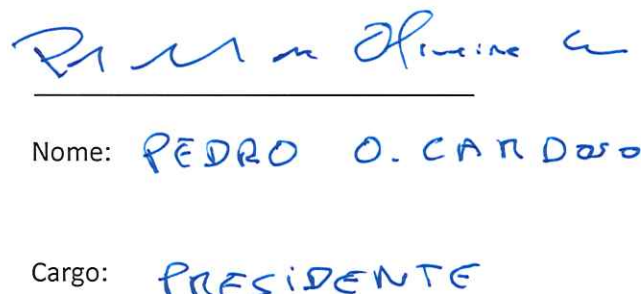 Oliveira
Nome: PEDRO O. CARDOSO
Cargo: PRESIDENTE